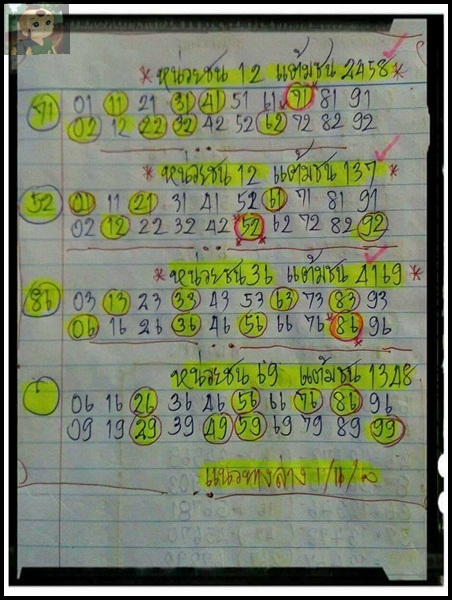 * หน่วยชน 12 แต้มชน 2458 *
71 01 11 21 31 41 51 61 71 81 91
02 12 22 32 42 52 62 72 82 92
* หน่วยชน 12 แต้มชน 137 *
52 01 11 21 31 41 52 61 71 81 91
02 12 22 32 42 52 62 72 82 92
* หน่วยชน 36 แต้มชน 4169 *
86 03 13 23 33 43 53 63 73 83 93
06 16 26 36 46 56 66 76 86 96
หน่วยชน 69 แต้มชน 1348
06 16 26 36 46 56 66 76 86 96
09 19 29 39 49 59 69 79 89 99
แนวทางล่าง 1/16/